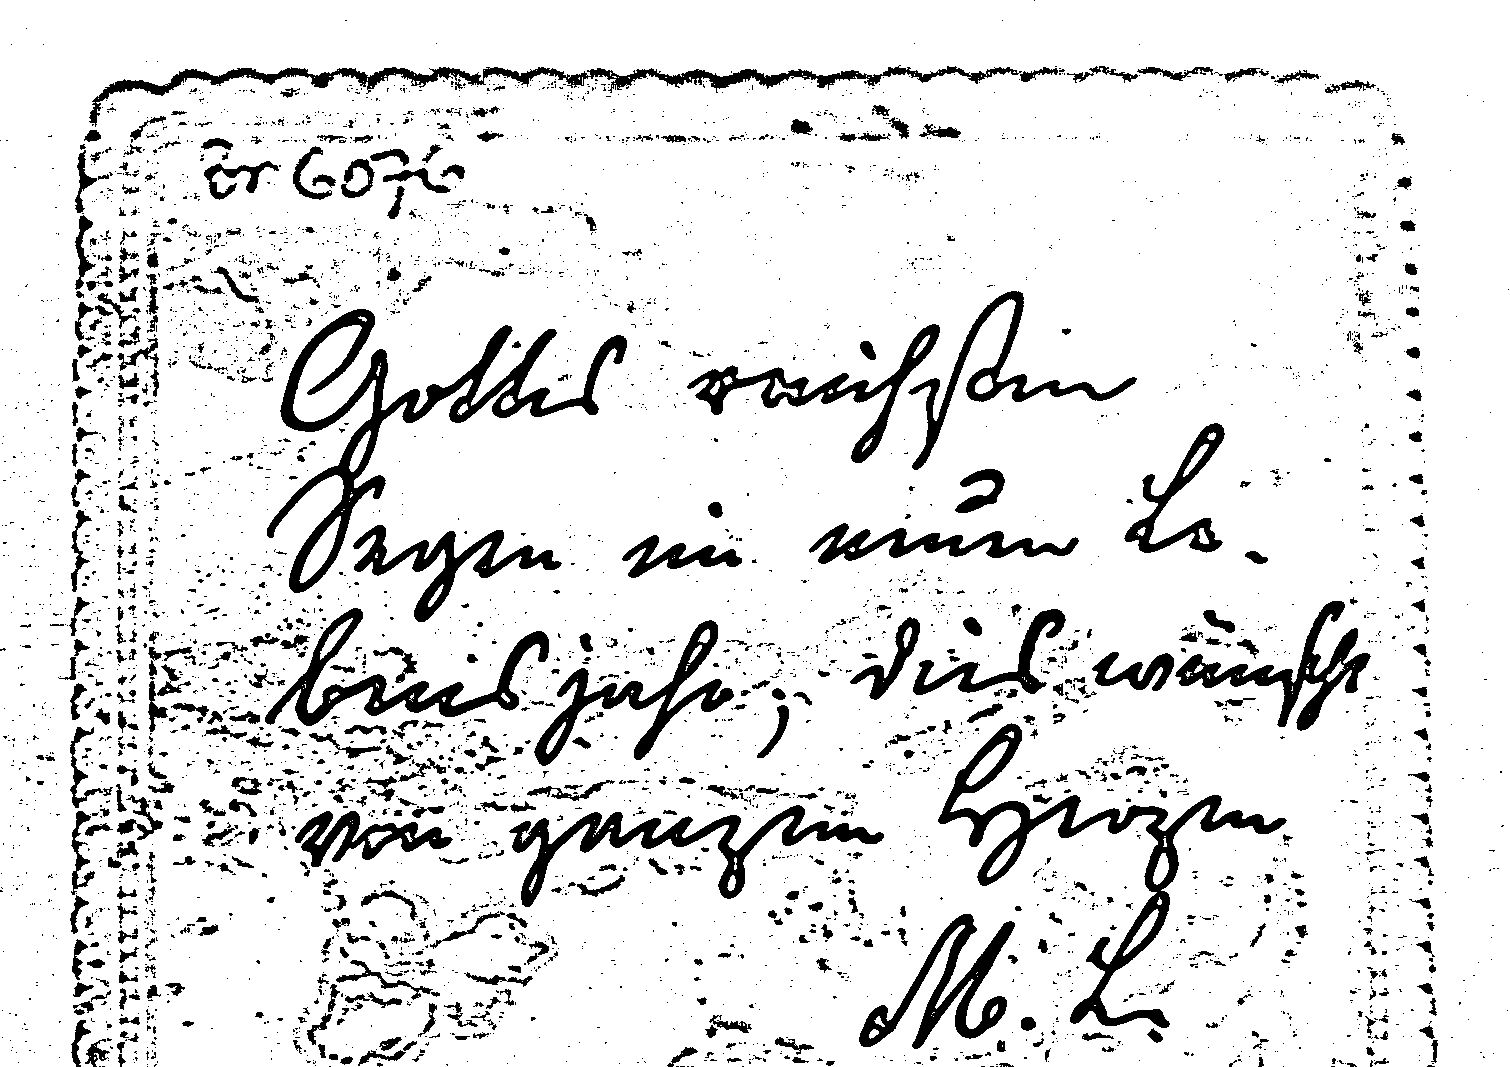 Er 6076
Gottes reichsten
Segen im neuen Le-
bensjahr, dies wünscht
von ganzem Herzen
M. L.